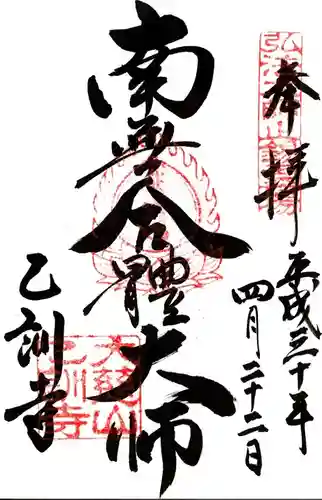 奉拝
平成三十年
四月二十二日
南無合體大師
乙訓寺
大慈山
乙訓寺